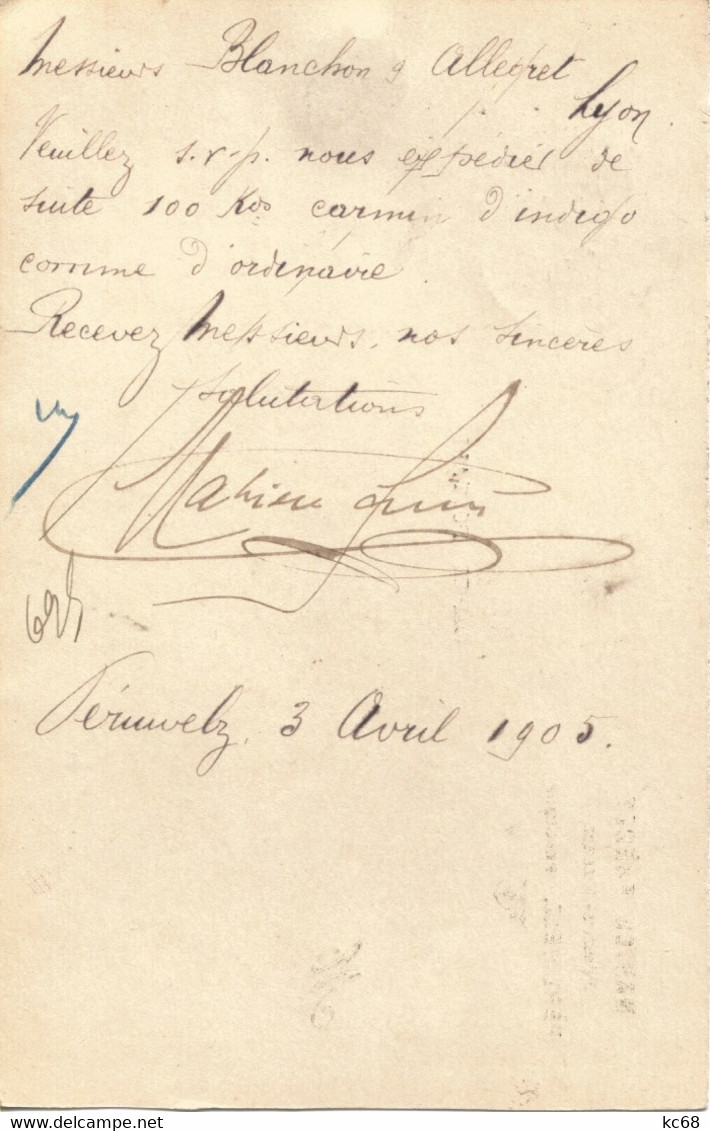 Messieurs Blanchon & Allegret
Lyon
Veuillez s.v.p. nous expédier de
suite 100 Kos carmin d'indigo
comme d'ordinaire
Recevez Messieurs, nos sincères
salutations
Mahieu
Péruwelz, 3 Avril 1905.
delcampe.net
kc68